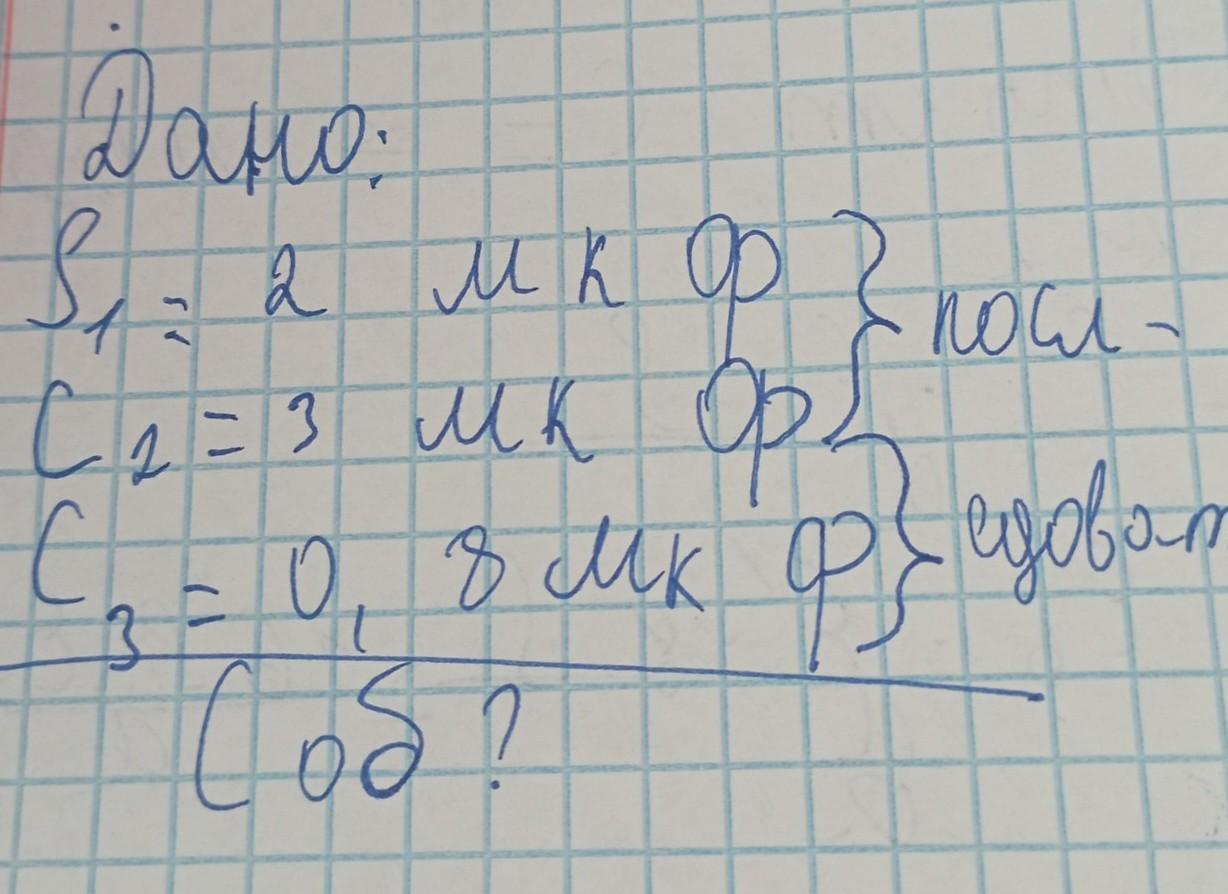 Дано:
S1 = 2 мк Ф } посл-
C2 = 3 мк Ф
C3 = 0,8 мк Ф } едоват
Cоб ?